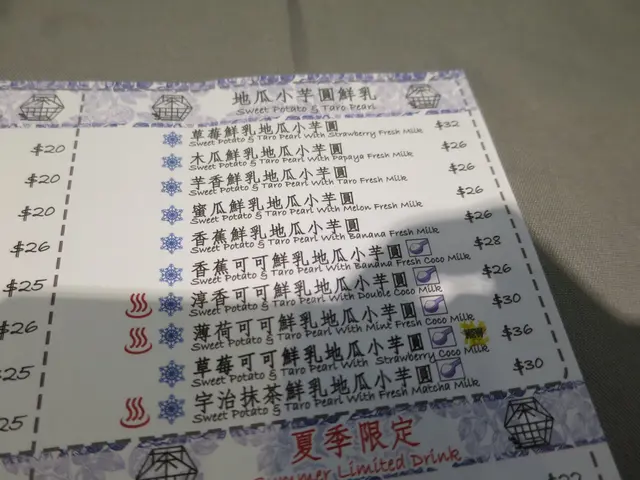 地瓜小芋圓鮮乳
Sweet Potato & Taro Pearl
草莓鮮乳地瓜小芋圓 $32
Sweet Potato & Taro Pearl With Strawberry Fresh Milk
木瓜鮮乳地瓜小芋圓 $26
Sweet Potato & Taro Pearl With Papaya Fresh Milk
芋香鮮乳地瓜小芋圓 $26
Sweet Potato & Taro Pearl With Taro Fresh Milk
蜜瓜鮮乳地瓜小芋圓 $26
Sweet Potato & Taro Pearl With Melon Fresh Milk
香蕉鮮乳地瓜小芋圓 $26
Sweet Potato & Taro Pearl With Banana Fresh Milk
香蕉可可鮮乳地瓜小芋圓 $28
Sweet Potato & Taro Pearl With Banana Fresh Coco Milk
淳香可可鮮乳地瓜小芋圓 $26
Sweet Potato & Taro Pearl With Double Coco Milk
薄荷可可鮮乳地瓜小芋圓 $30
Sweet Potato & Taro Pearl With Mint Fresh Coco Milk
草莓可可鮮乳地瓜小芋圓 $36
Sweet Potato & Taro Pearl With Strawberry Coco Milk
宇治抹茶鮮乳地瓜小芋圓 $30
Sweet Potato & Taro Pearl With Fresh Matcha Milk
夏季限定
Summer Limited Drink
$20
$20
$20
$26
$25
$26
$25
$25